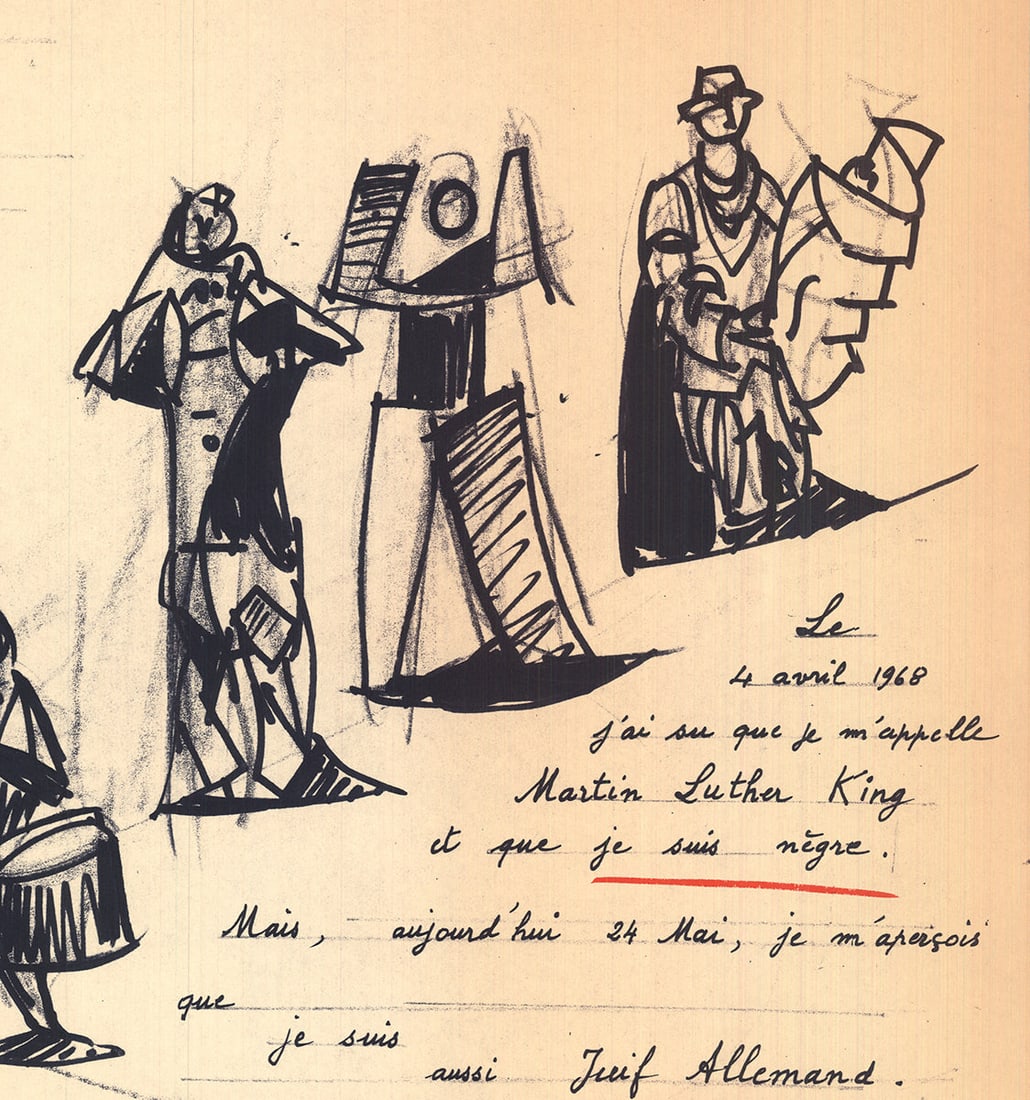 Le
4 avril 1968
j'ai su que je m'appelle
Martin Luther King
et que je suis nègre.
Mais, aujourd'hui 24 Mai, je m'aperçois
que
je suis
aussi Juif Allemand.